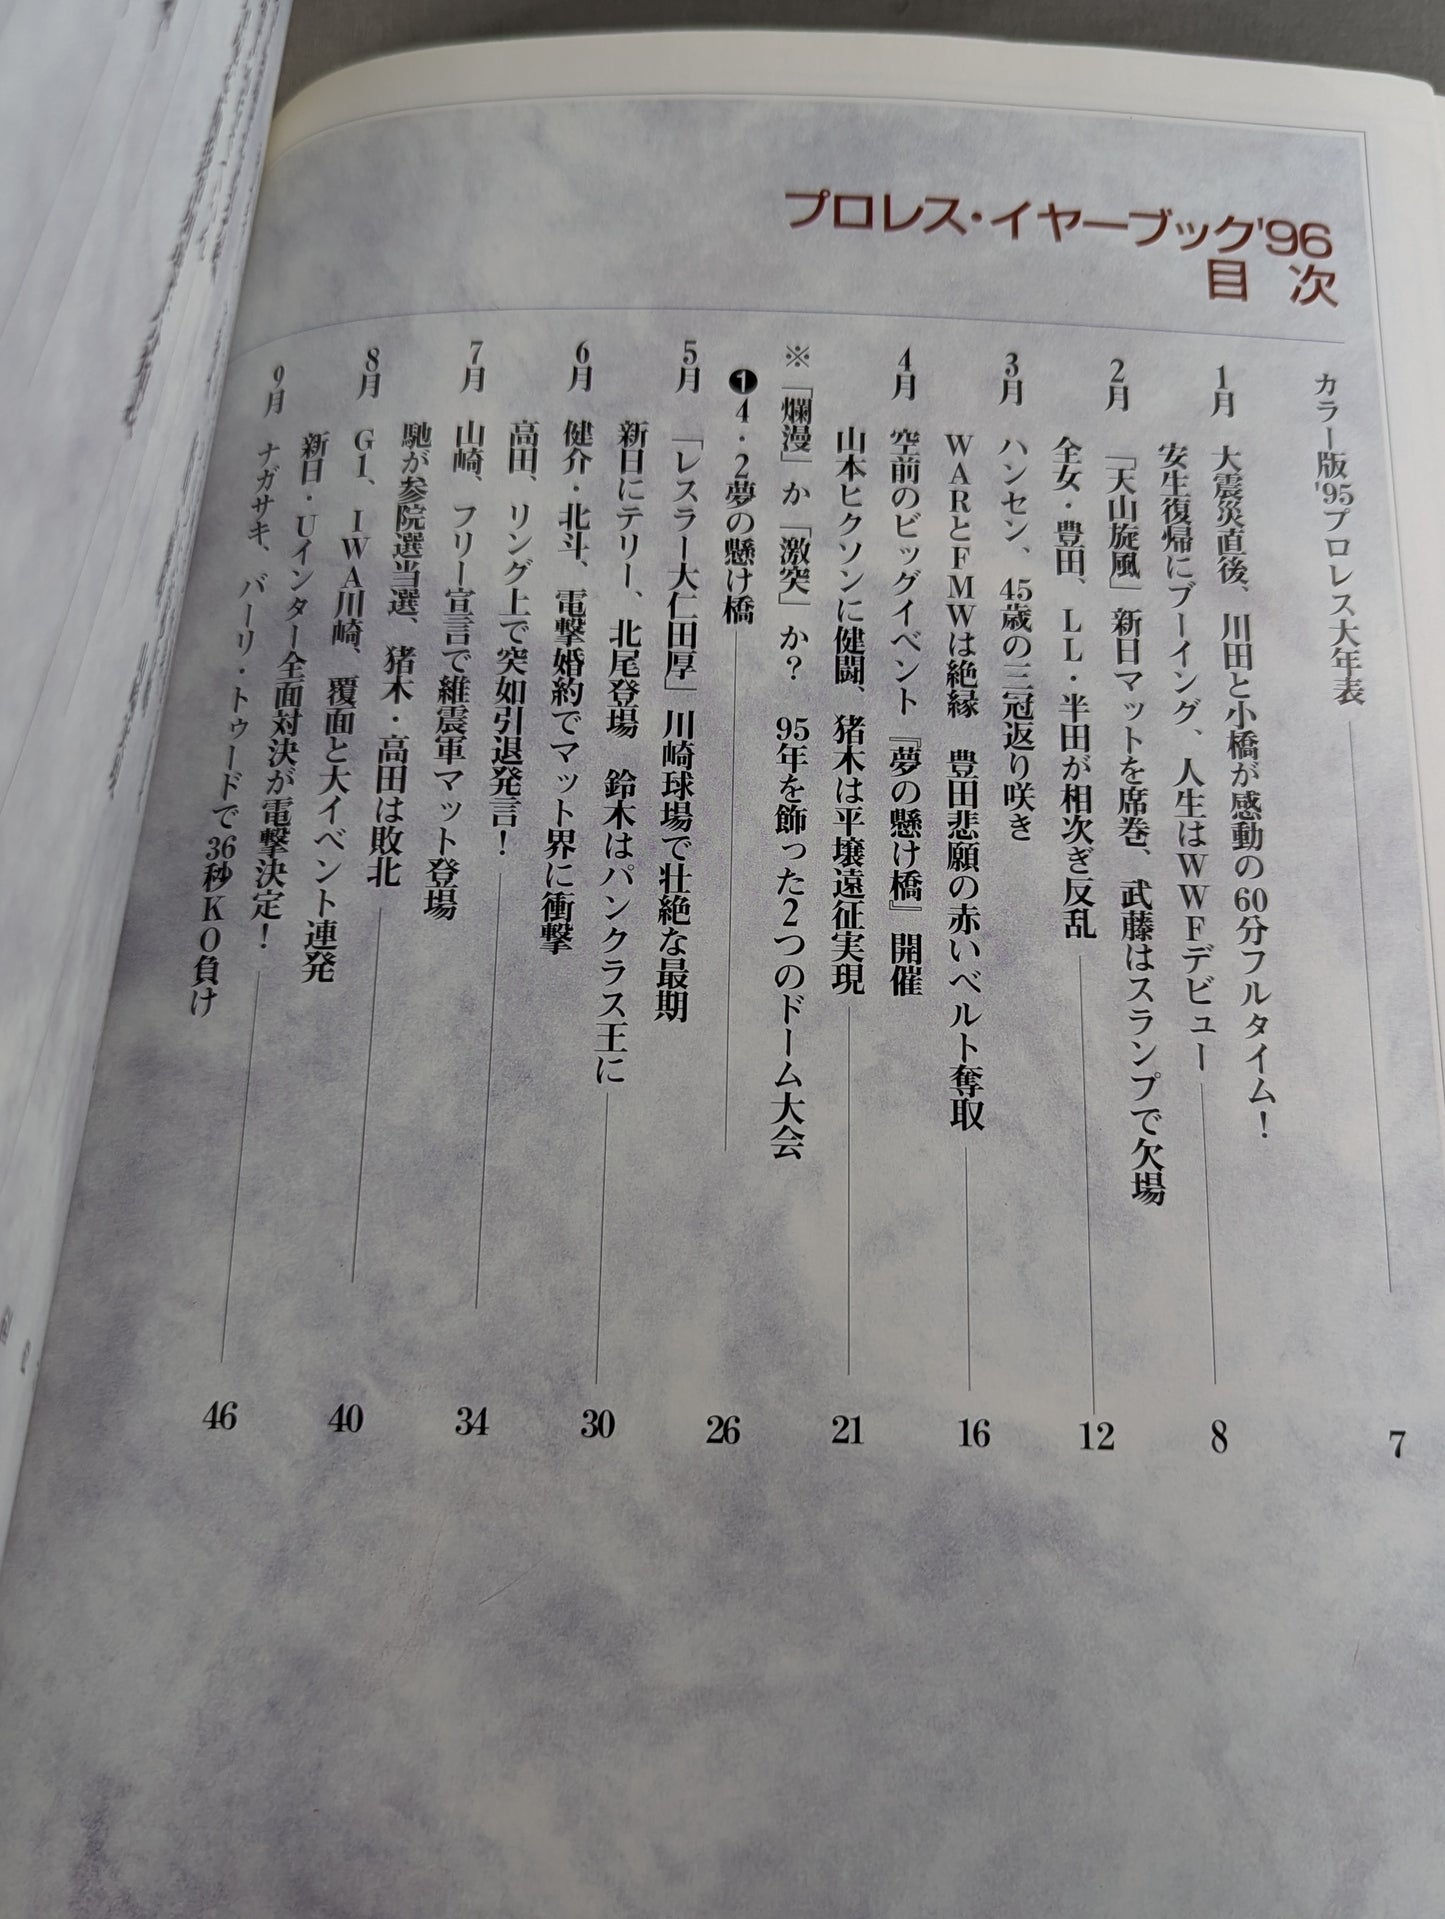 プロレス・イヤーブック'96
目次
カラー版'95プロレス大年表
7
1月
大震災直後、川田と小橋が感動の60分フルタイム！
安生復帰にブーイング、人生はWWFデビュー
8
2月
「天山旋風」新日マットを席巻、武藤はスランプで欠場
全女・豊田、LL・半田が相次ぎ反乱
12
3月
ハンセン、45歳の三冠返り咲き
WARとFMWは絶縁　豊田悲願の赤いベルト奪取
16
4月
空前のビッグイベント『夢の懸け橋』開催
山本ヒクソンに健闘、猪木は平壌遠征実現
21
※「爛漫」か「激突」か？　95年を飾った2つのドーム大会
❶4・2夢の懸け橋
26
5月
「レスラー大仁田厚」川崎球場で壮絶な最期
新日にテリー、北尾登場　鈴木はパンクラス王に
30
6月
健介・北斗、電撃婚約でマット界に衝撃
高田、リング上で突如引退発言！
34
7月
山崎、フリー宣言で維震軍マット登場
馳が参院選当選、猪木・高田は敗北
40
8月
G1、IWA川崎、覆面と大イベント連発
新日・Uインター全面対決が電撃決定！
46
9月
ナガサキ、バーリ・トゥードで36秒KO負け